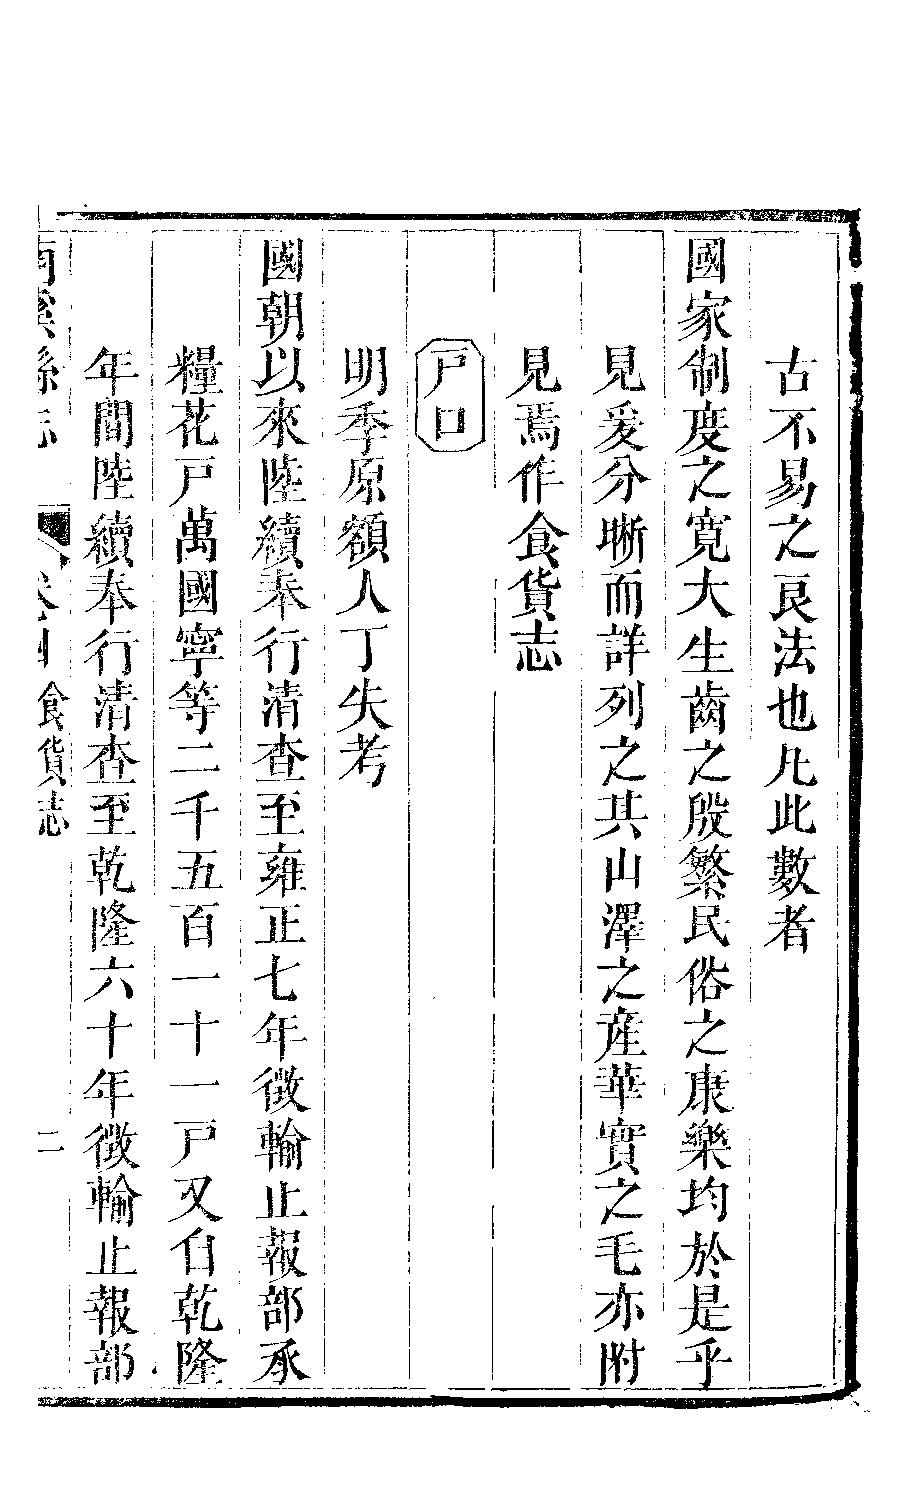 古不易之良法也凡此數者
國家制度之寬大生齒之殷繁民俗之康樂均於是乎
見爰分晰而詳列之其山澤之產華實之毛亦附
見焉作食貨志
戶口
明季原額人丁失考
國朝以來陸續奉行清查至雍正七年徵輸止報部承
糧花戶萬國寧等二千五百一十一戶又自乾隆
年間陸續奉行清查至乾隆六十年徵輸止報部
南溪縣志 卷四 食貨志 二